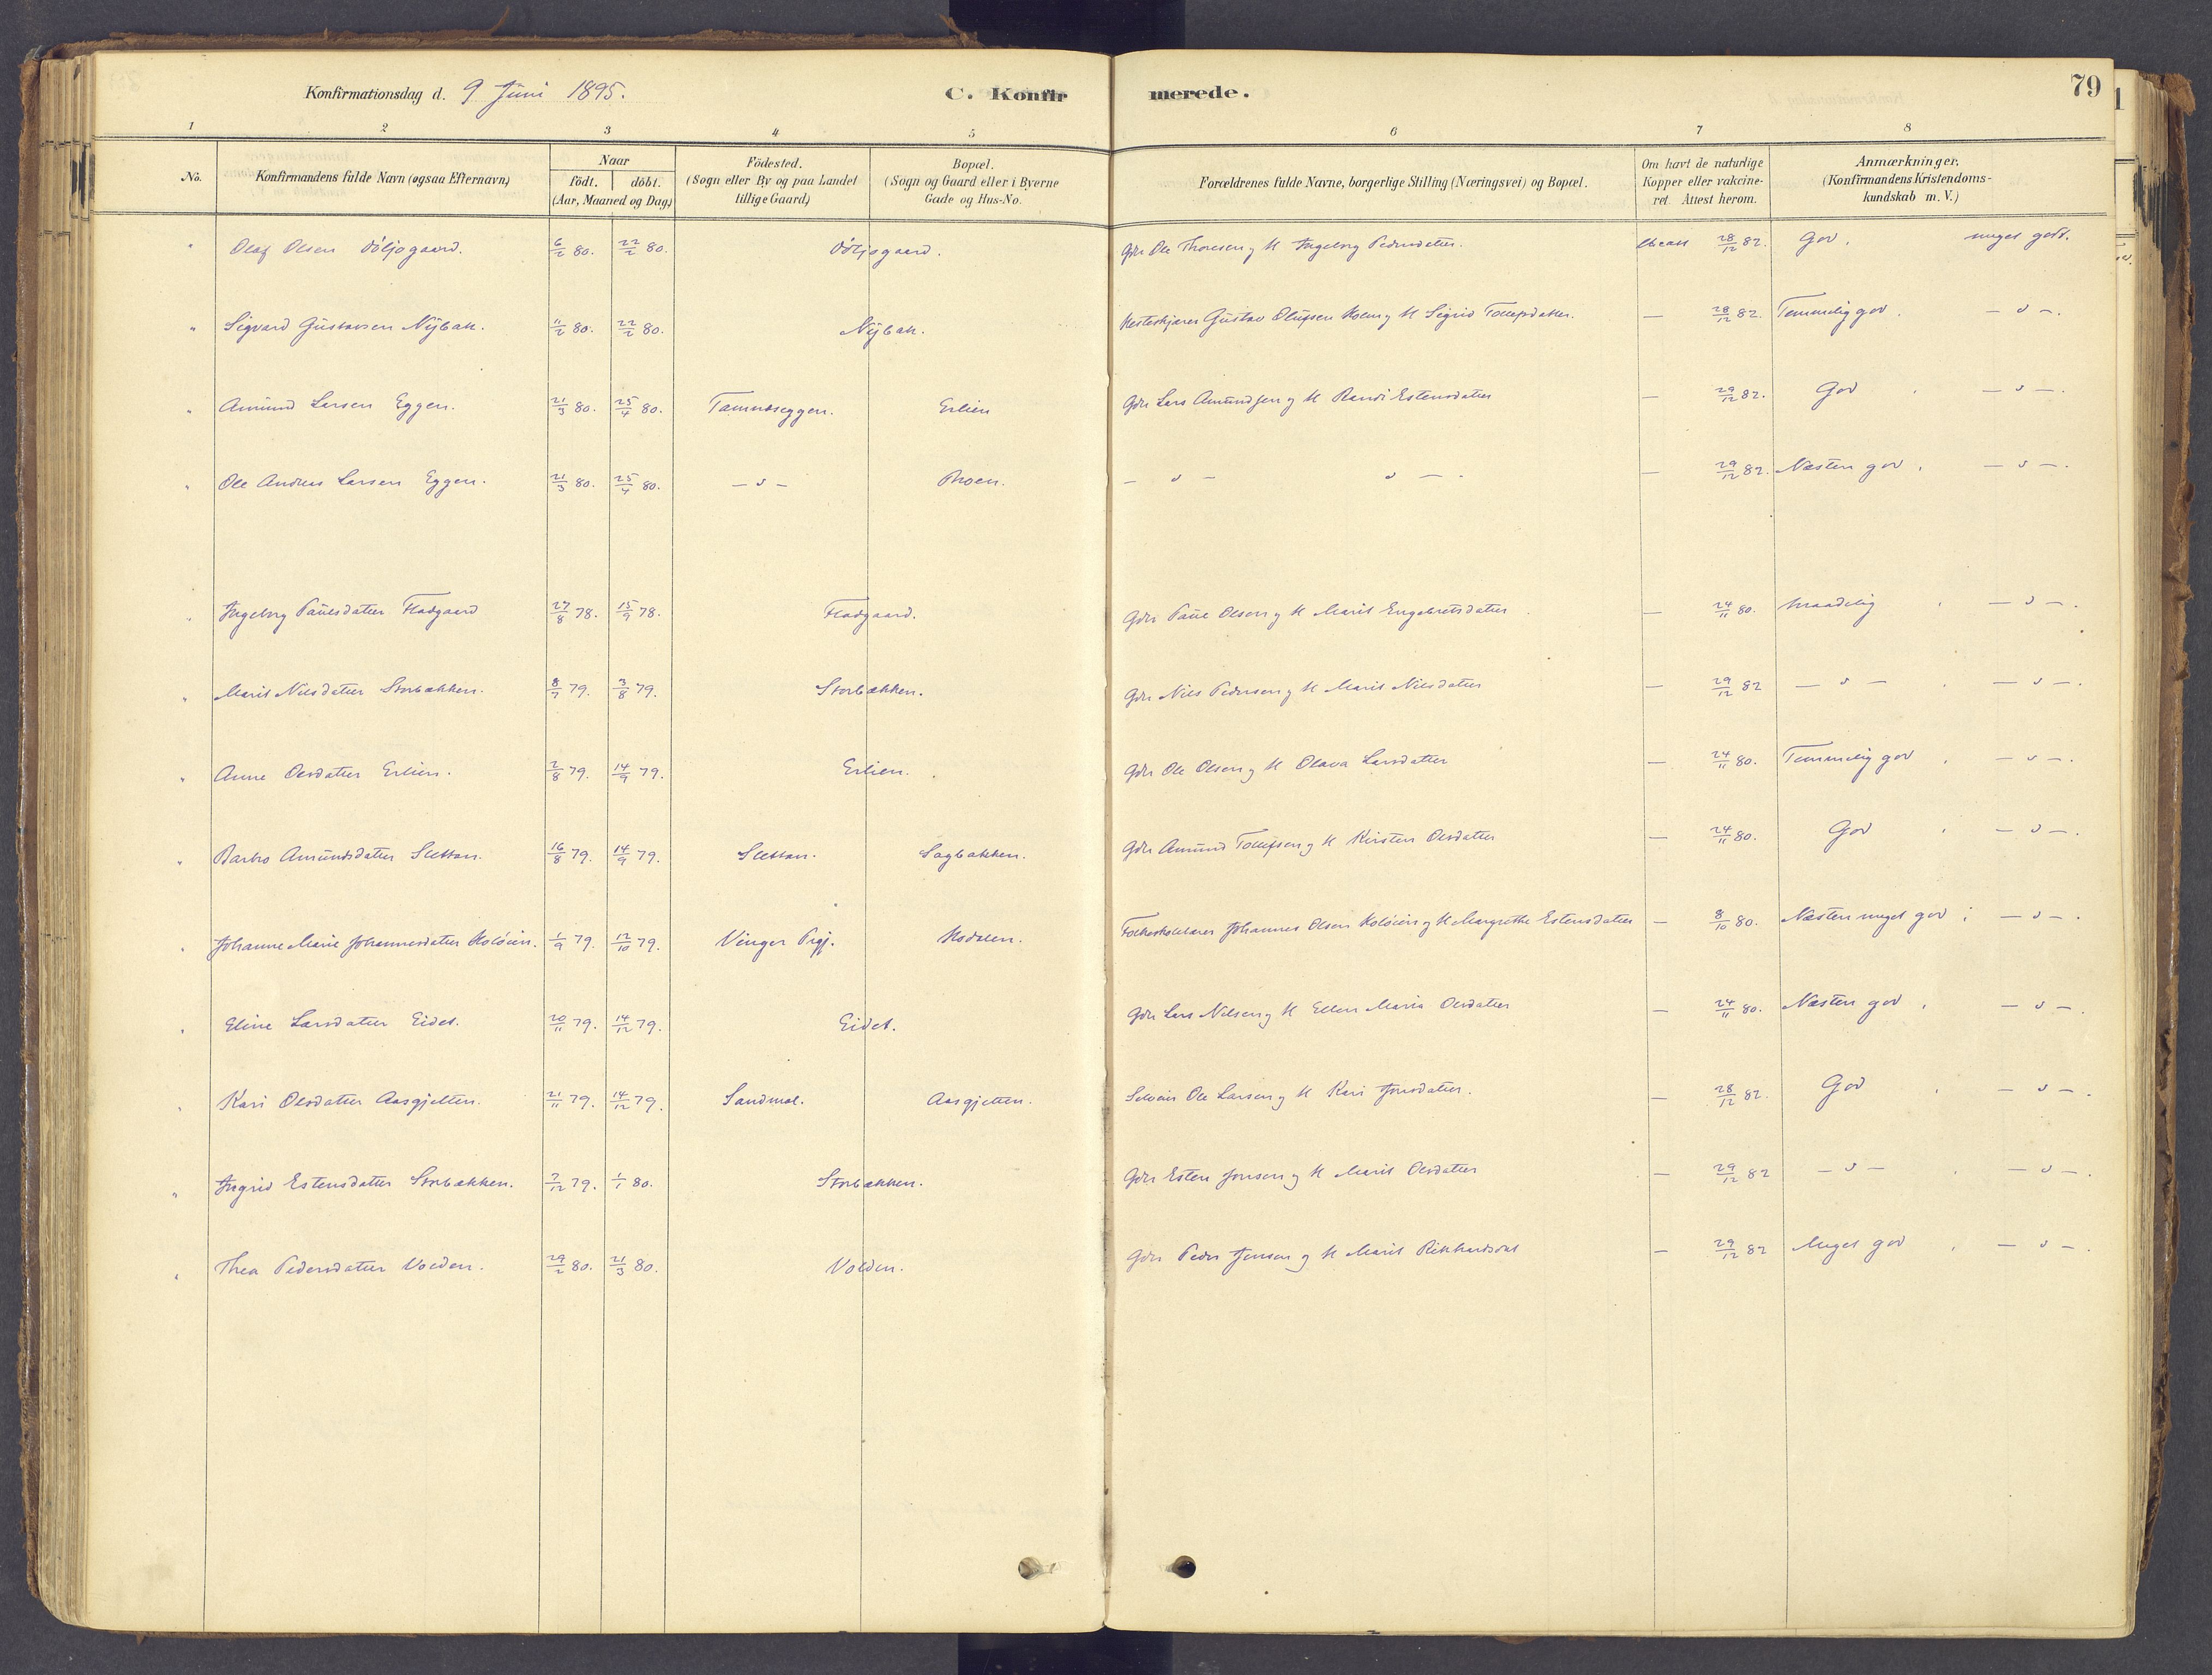 Konfirmationsdag d. 9 Juni 1895. C. Konfirmerede. 79
1 2 3 4 5 6 7 8
No. Konfirmandens fulde Navn (ogsaa Efternavn) Naar födt. döbt. (Aar, Maaned og Dag) Födested. (Sogn eller By og paa Landet tillige Gaard) Bopæl. (Sogn og Gaard eller i Byerne Gade og Hus-No. Forældrenes fulde Navne, borgerlige Stilling (Næringsvei) og Bopæl. Om havt de naturlige Kopper eller vakcineret. Attest herom. Anmærkninger. (Konfirmandens Kristendomskundskab m. V.)
" Olaf Olsen 6/2 80. 22/2 80. Gdr Ole Thoresen og H Ingeborg Pedersdatter. 28/12 82. God. meget godt.
" Sigvard Gustavsen Nÿbak. 11/2 80. 22/2 80. Nÿbak. Gustav Olufsen Holm og H Sigrid Tollefsdatter. — 28/12 82. Temmelig god. — " —.
" Amund Larsen Eggen. 21/3 80. 25/4 80. Tamnæseggen. Erlien Gdr Lars Amundsen og H Randi Estensdatter — 29/12 82. God. — " —.
" Ole Andreas Larsen Eggen. 21/3 80. 25/4 80. — " — Moen. — " — " —. — 29/12 82. Næsten god. — " —.
" Ingeborg Paulsdatter Fladgaard 27/8 78. 15/9 78. Fladgaard. Gdr Paul Olsen og H Marit Engebretsdatter — 24/11 80. Maadelig. — " —.
" Marit Nilsdatter Storbækken. 8/7 79. 3/8 79. Storbækken. Gdr Nils Pedersen og H Marit Nilsdatter — 29/12 82 — " —. — " —.
" Anne Olsdatter Erlien. 2/8 79. 14/9 79. Erlien. Gdr Ole Olsen og H Olava Larsdatter — 24/11 80. Temmelig god. — " —.
" Barbro Amundsdatter Slettan. 16/8 79. 14/9 79. Slettan. Sagbakken. Gdr Amund Tollefsen og H Kirsten Olsdatter — 24/11 80. God. — " —.
" Johanne Marie Johannesdatter Koløien. 1/9 79. 12/10 79. Vinger Prgj. Hodalen. Folkeskolelærer Johannes Olsen Koløien og H Margrethe Estensdatter — 8/10 80. Næsten meget god. — " —.
" Eline Larsdatter Eidet. 20/11 79. 14/12 79. Eidet. Gdr Lars Nilsen og H Ellen Maria Olsdatter — 24/11 80. Næsten god. — " —.
" Kari Olsdatter Aasgjelten. 21/11 79. 14/12 79. Sandmæl. Aasgjelten. Selveier Ole Larsen og H Kari Jonsdatter. — 28/12 82. God. — " —.
" Ingrid Estensdatter Storbækken. 7/12 79. 1/1 80. Storbækken. Gdr Esten Jonsen og H Marit Olsdatter — 29/12 82 — " —. — " —.
" Thea Pedersdatter Volden. 29/2 80. 21/3 80. Volden. Gdr Peder Jensen og H Marit Rikhardsdat — 29/12 82 Meget god. — " —.